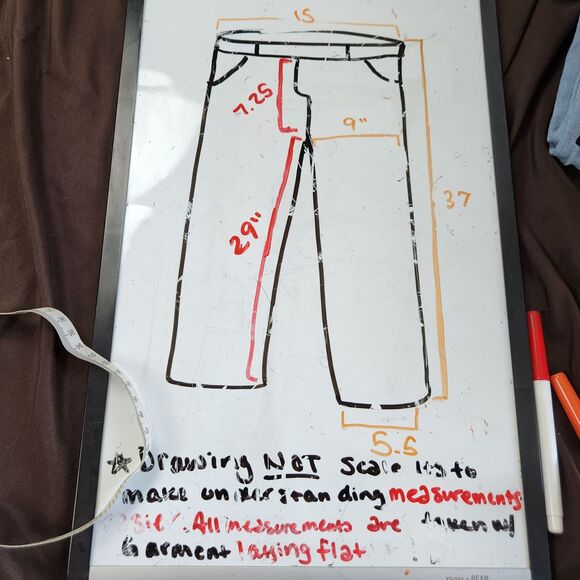 15
7.25
9"
29"
37
5.5
Drawing NOT scale its to
make understanding measurements
All measurements are taken w/
Garment laying flat